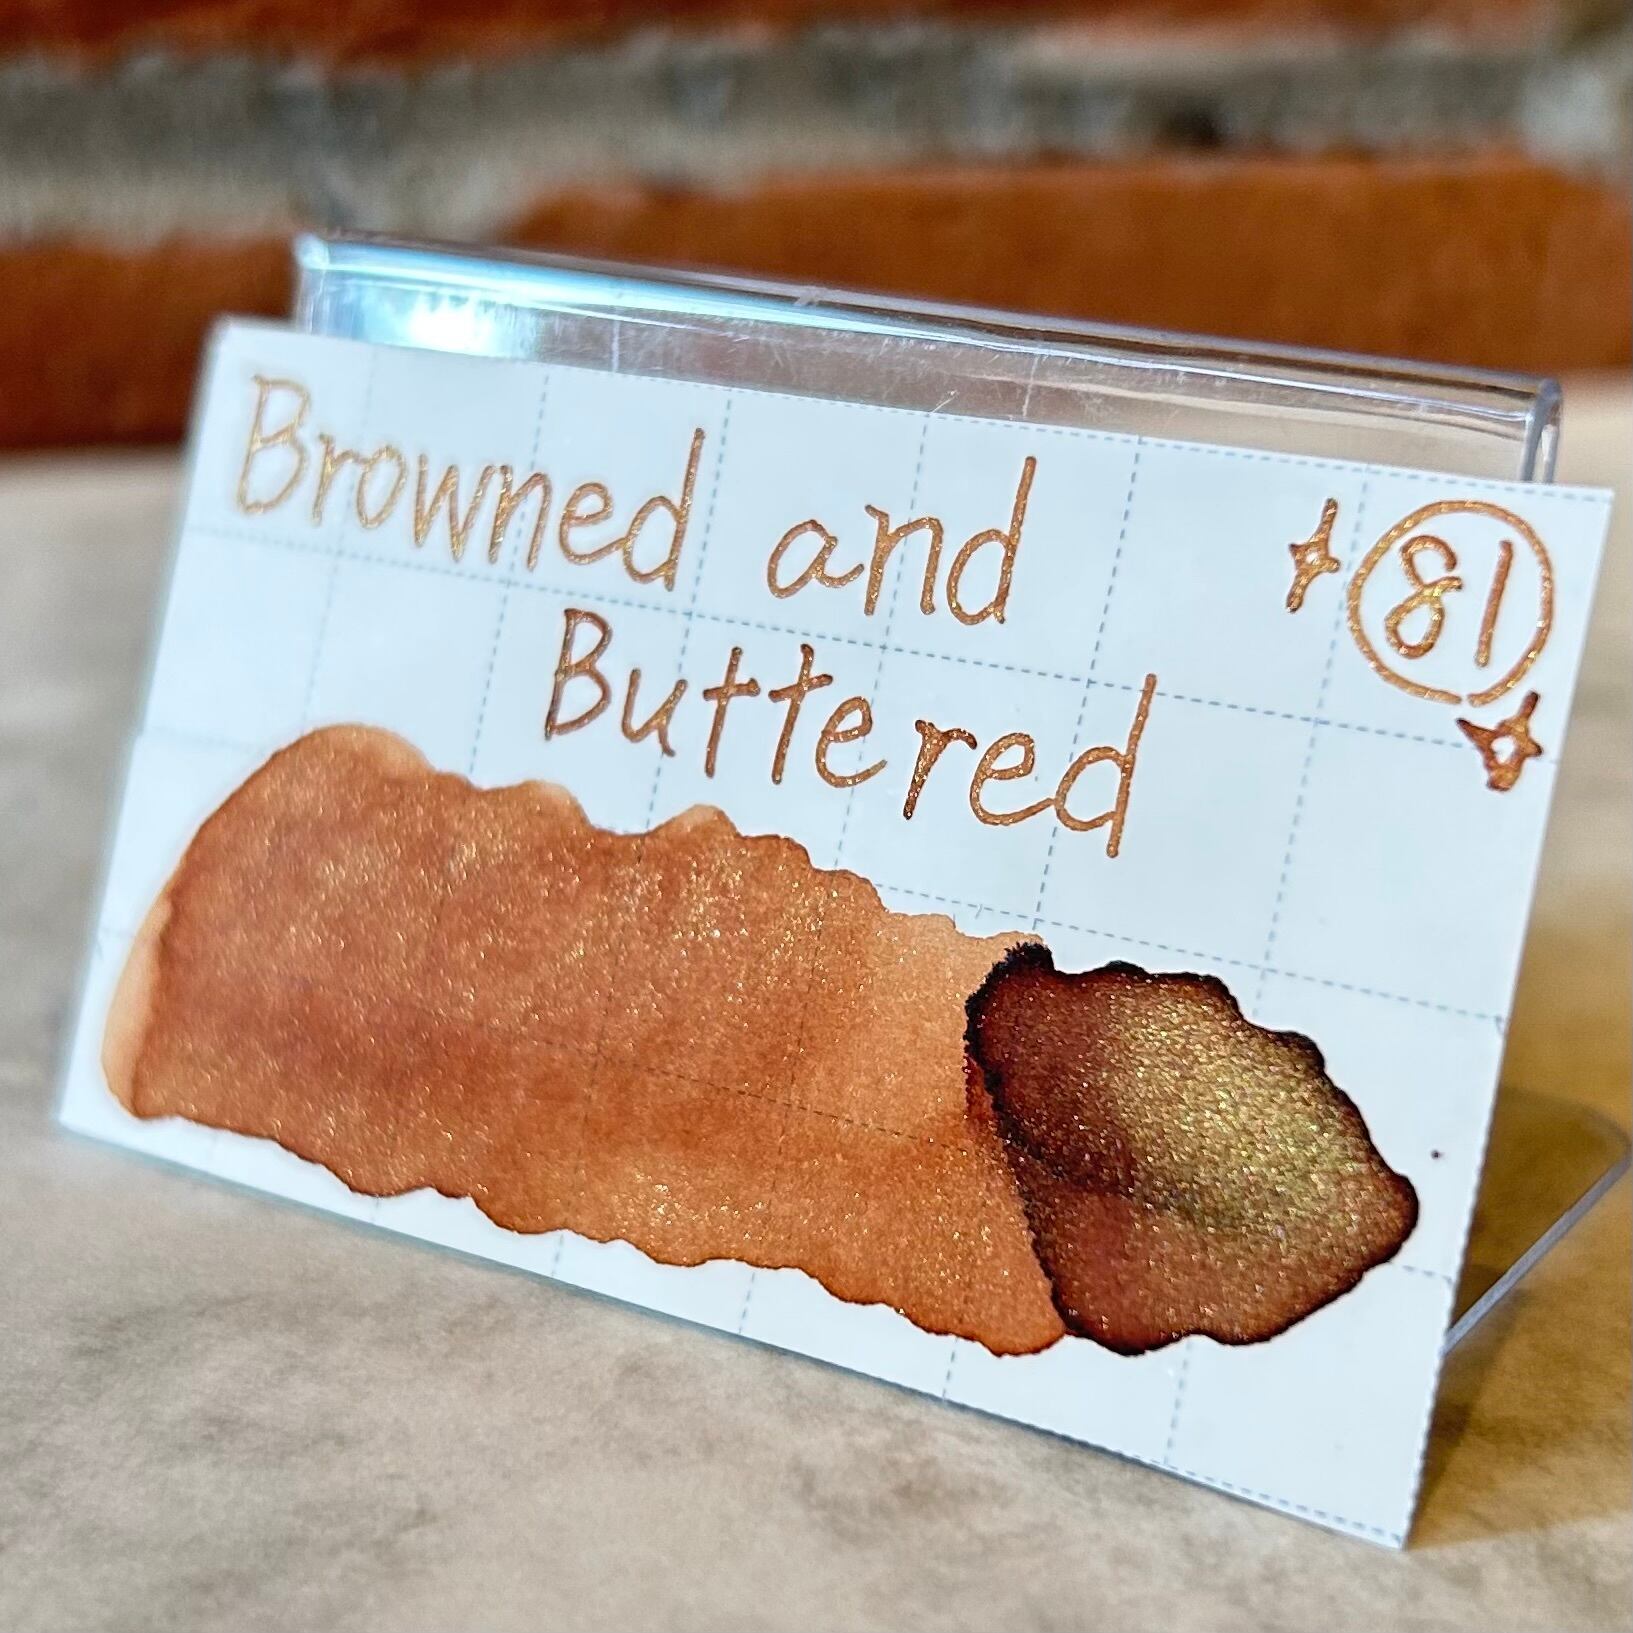 Browned and
Buttered
81